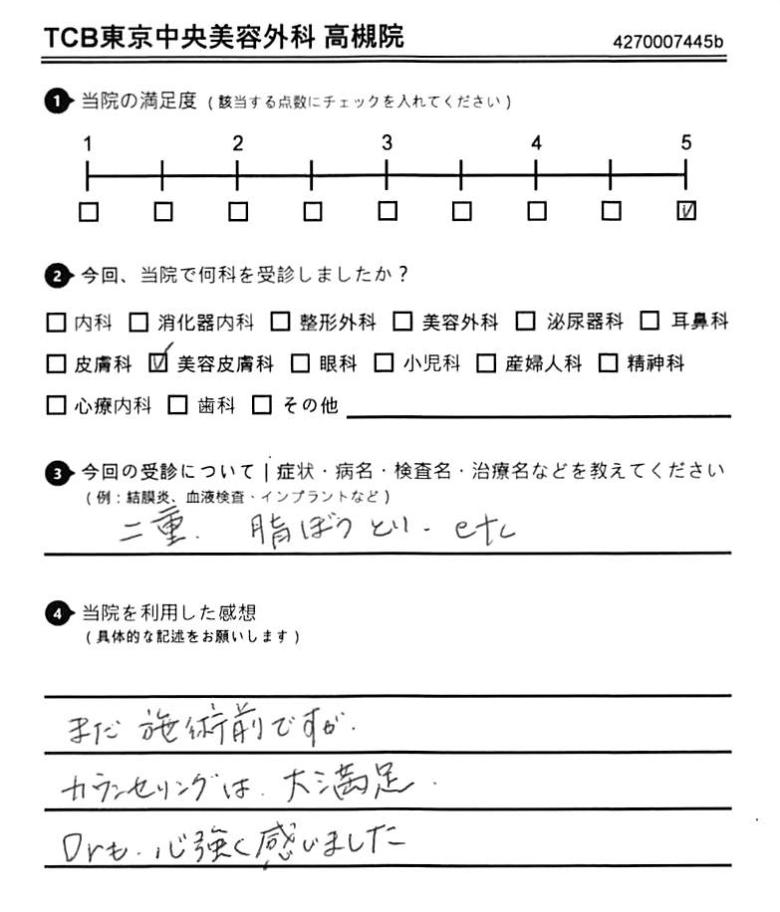 TCB東京中央美容外科 高槻院 4270007445b
1 当院の満足度 (該当する点数にチェックを入れてください)
1 2 3 4 5
☐ ☐ ☐ ☐ ☐ ☐ ☐ ☐ ☑
2 今回、当院で何科を受診しましたか?
☐ 内科 ☐ 消化器内科 ☐ 整形外科 ☐ 美容外科 ☐ 泌尿器科 ☐ 耳鼻科
☐ 皮膚科 ☑ 美容皮膚科 ☐ 眼科 ☐ 小児科 ☐ 産婦人科 ☐ 精神科
☐ 心療内科 ☐ 歯科 ☐ その他
3 今回の受診について|症状・病名・検査名・治療名などを教えてください
(例:結膜炎、血液検査・インプラントなど)
二重. 脂ぼうとり. etc
4 当院を利用した感想
(具体的な記述をお願いします)
まだ 施術前ですが.
カウンセリングは. 大満足.
Drも. 心強く感いました